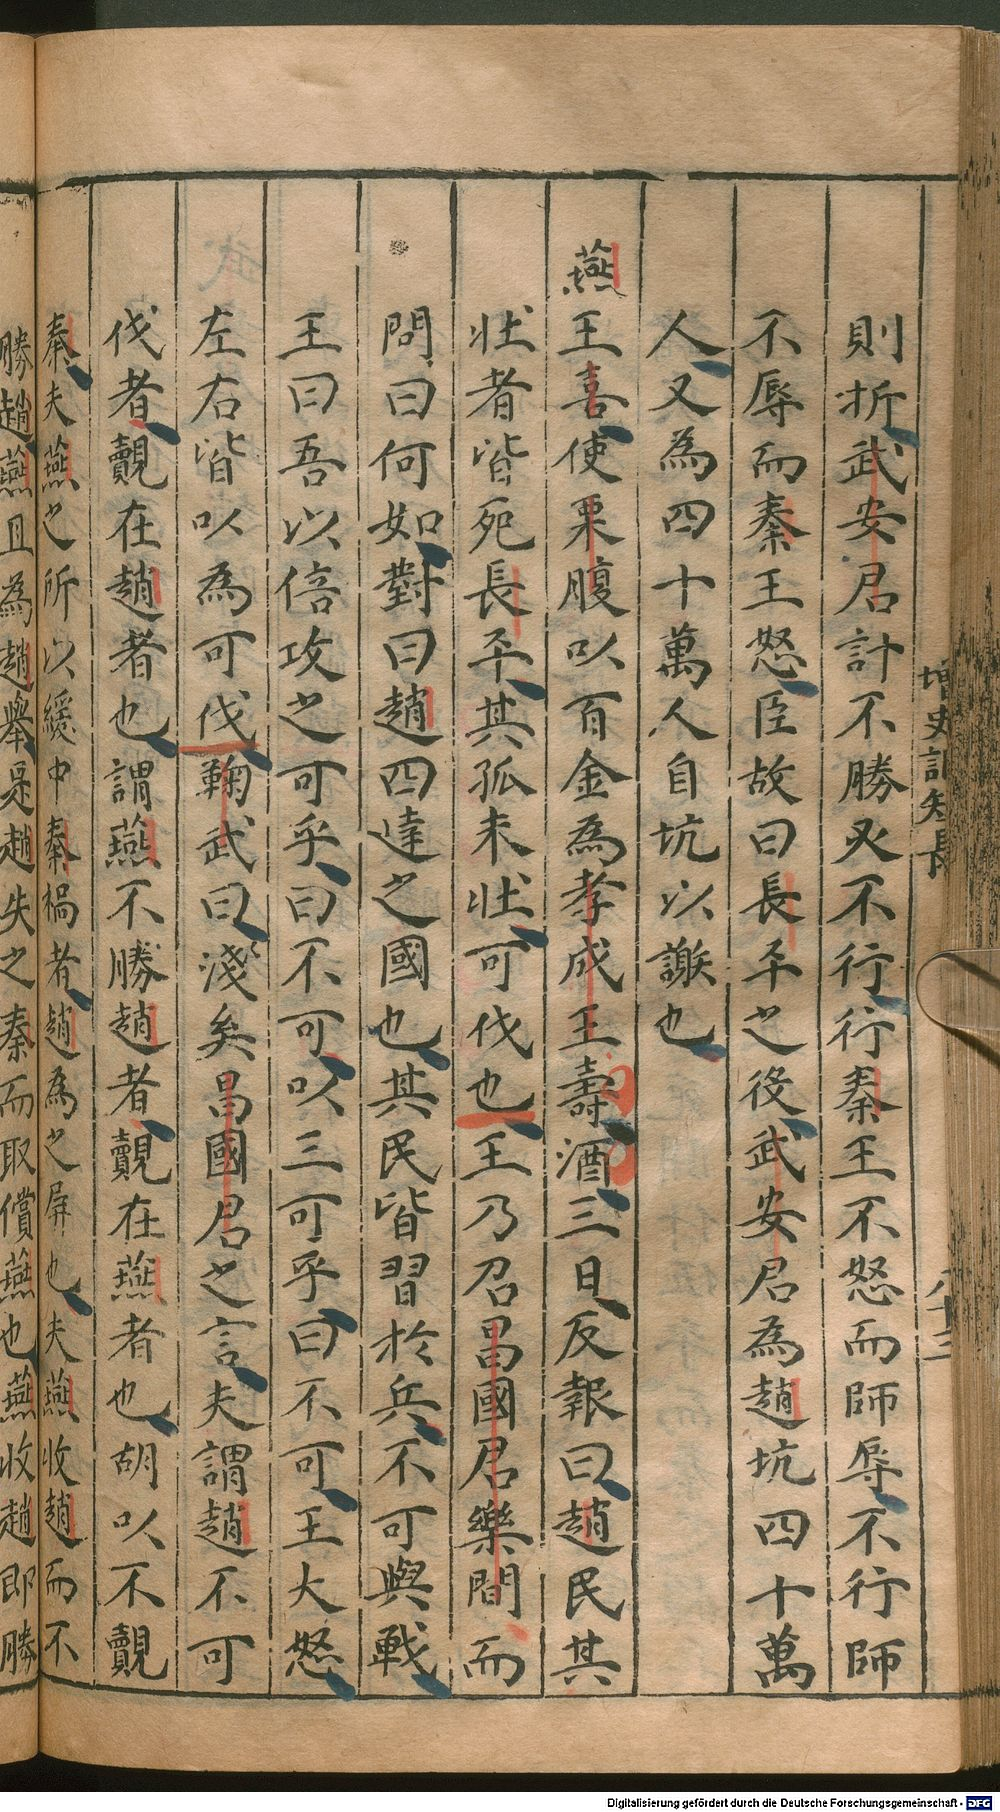 增史記短長
八十三
則折武安君計不勝必不行行秦王不怒而師辱不行師
不辱而秦王怒臣故曰長平之役武安君為趙坑四十萬
人又為四十萬人自坑以謝也
燕王喜使栗腹以百金為孝成王壽酒三日反報曰趙民其
壯者皆死長平其孤未壯可伐也王乃召昌國君樂間而
問曰何如對曰趙四達之國也其民皆習於兵不可與戰
王曰吾以倍攻之可乎曰不可以三可乎曰不可王大怒
左右皆以為可伐鞠武曰淺矣昌國君之言夫謂趙不可
伐者覿在趙者也謂燕不勝趙者覿在燕者也胡以不覿
秦夫燕之所以緩中秦禍者趙為之屏也夫燕收趙而不
勝趙燕且為趙舉是趙失之秦而取償燕也燕收趙即勝
Digitalisierung gefördert durch die Deutsche Forschungsgemeinschaft - DFG